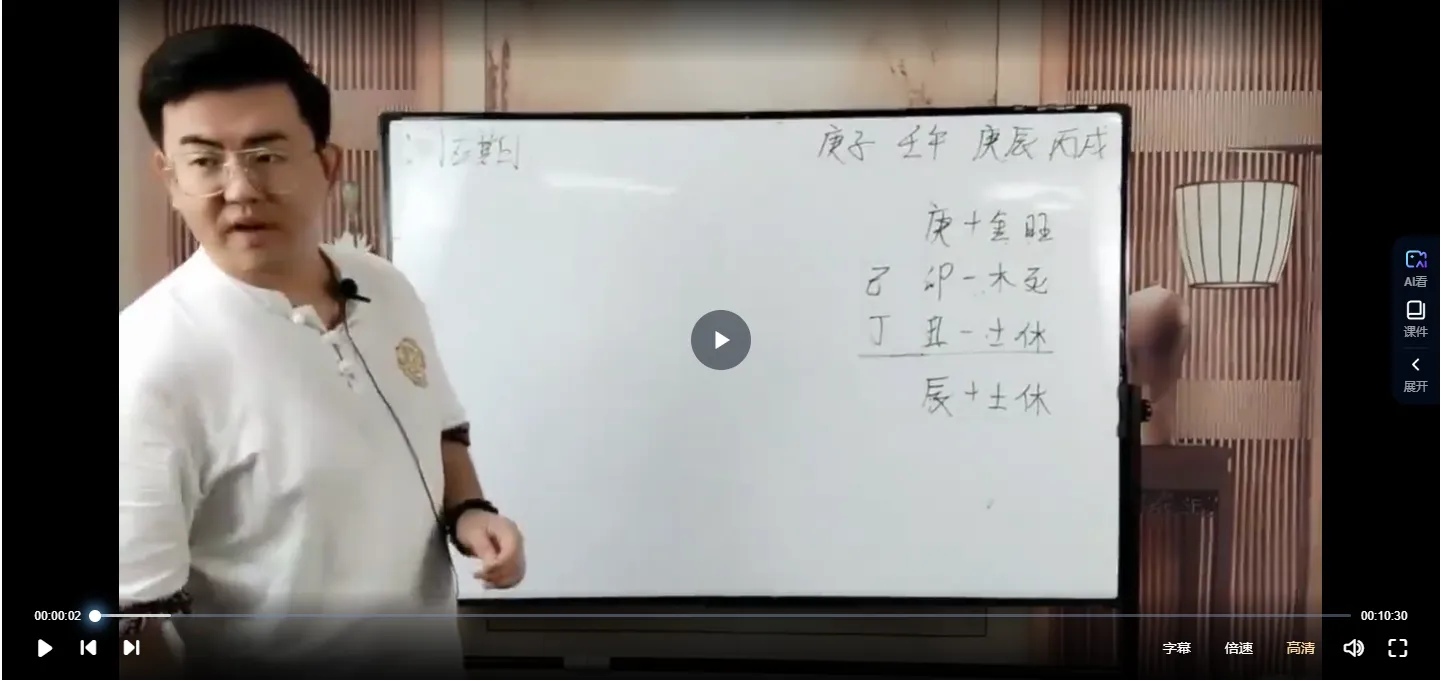 庚子 壬午 庚辰 丙戌
庚 + 金 旺
己 卯 - 木 死
丁 丑 - 土 休
辰 + 土 休
AI看
课件
展开
00:00:02
00:10:30
字幕
倍速
高清